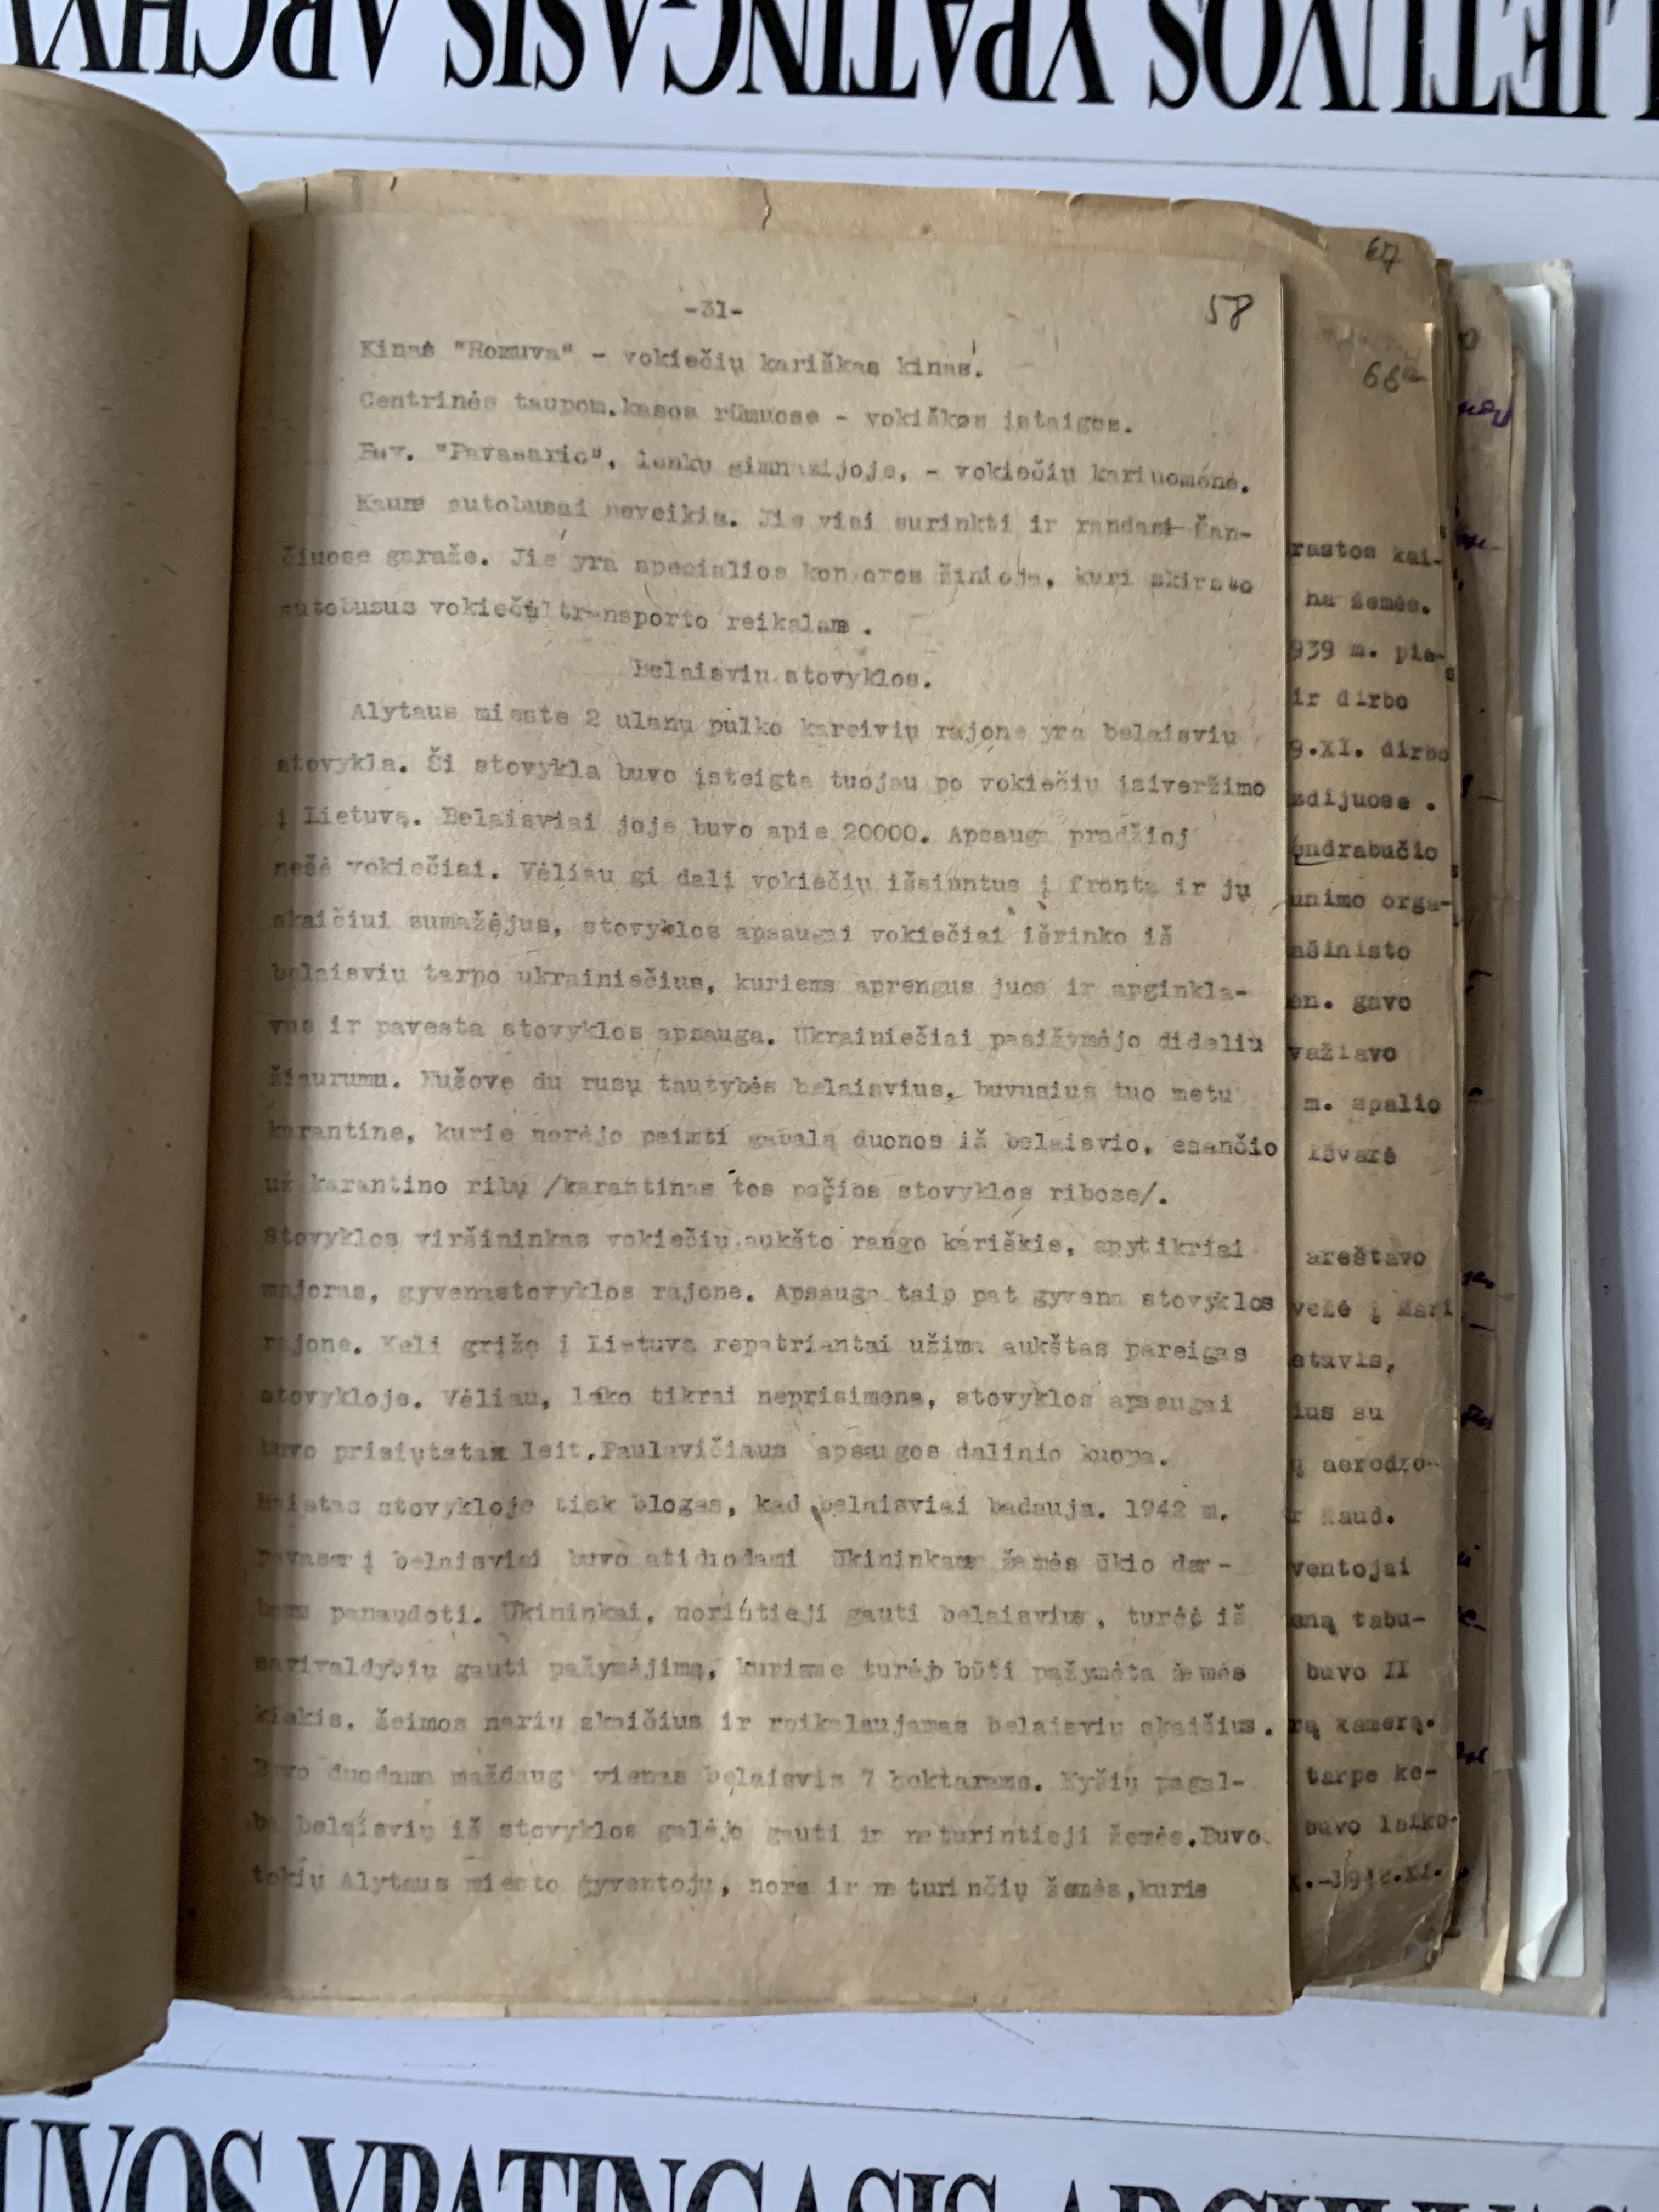 LIETUVOS YPATINGASIS ARCHYV
67
66a
58
-31-
Kinas "Romuva" - vokiečių kariškas kinas.
Centrinės taupom.kasos rūmuose - vokiškos įstaigos.
Buv. "Pavasario", lenkų gimnazijoje, - vokiečių kariuomėnė.
Kaune autobusai neveikia. Jie visi surinkti ir randasi Šan-
čiuose garaže. Jie yra specialios kontoros žinioje, kuri skirsto
autobusus vokiečių transporto reikalams .
Belaisvių stovyklos.
Alytaus mieste 2 ulanų pulko kareivių rajone yra belaisvių
stovykla. Ši stovykla buvo įsteigta tuojau po vokiečių įsiveržimo
į Lietuvą. Belaisviai joje buvo apie 20000. Apsaugą pradžioj
nešė vokiečiai. Vėliau gi dalį vokiečių išsiuntus į frontą ir jų
skaičiui sumažėjus, stovyklos apsaugai vokiečiai išrinko iš
belaisvių tarpo ukrainiečius, kuriems aprengus juos ir apginkla-
vus ir pavesta stovyklos apsauga. Ukrainiečiai pasižymėjo dideliu
žiaurumu. Nušovė du rusų tautybės belaisvius, buvusius tuo metu
karantine, kurie norėjo paimti gabalą duonos iš belaisvio, esančio
už karantino ribų /karantinas tos pačios stovyklos ribose/.
Stovyklos viršininkas vokiečių aukšto rango kariškis, apytikriai
majoras, gyvenastovyklos rajone. Apsauga taip pat gyvena stovyklos
rajone. Keli grįžę į Lietuvą repatriantai užima aukštas pareigas
stovykloje. Vėliau, laiko tikrai neprisimena, stovyklos apsaugai
buvo prisiųsta leit.Paulavičiaus apsaugos dalinio kuopa.
Maistas stovykloje tiek blogas, kad belaisviai badauja. 1942 m.
pavasarį belaisviai buvo atiduodami ūkininkams žemės ūkio dar-
bams panaudoti. Ūkininkai, norintieji gauti belaisvius, turėjo iš
savivaldybių gauti pažymėjimą, kuriame turėjo būti pažymėta žemės
kiekis, šeimos narių skaičius ir reikalaujamas belaisvių skaičius.
Buvo duodama maždaug vienas belaisvis 7 hektarams. Kyšių pagal-
ba belaisvių iš stovyklos galėjo gauti ir neturintieji žemės.Buvo
tokių Alytaus miesto gyventojų, nors ir neturinčių žemės,kurie
rastos kai-
ha žemės.
939 m. pia-
ir dirbo
9.XI. dirbo
zdijuose .
ondrabučio
unimo orga-
ašinisto
ėn. gavo
važiavo
m. spalio
Išvarė
areštavo
vežė į Mari
stuvis,
ius su
ą aerodro-
r Raud.
ventojai
aną tabu-
buvo II
rą kamerą.
tarpe ke-
buvo laiko-
X.-1942.XI.
UVOS YPATINGASIS ARCHYVAS